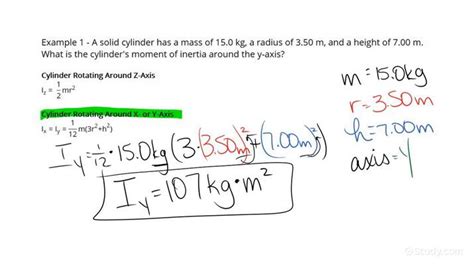 Example 1 - A solid cylinder has a mass of 15.0 kg, a radius of 3.50 m, and a height of 7.00 m.
What is the cylinder's moment of inertia around the y-axis?
Cylinder Rotating Around Z-Axis
I_z = 1/2 mr²
Cylinder Rotating Around X- or Y-Axis
I_x = I_y = 1/12 m(3r²+h²)
I_y = 1/12 · 15.0kg (3·(3.50m)²+(7.00m)²)
I_y = 107 kg·m²
m = 15.0kg
r = 3.50m
h = 7.00m
axis = y
©Study.com